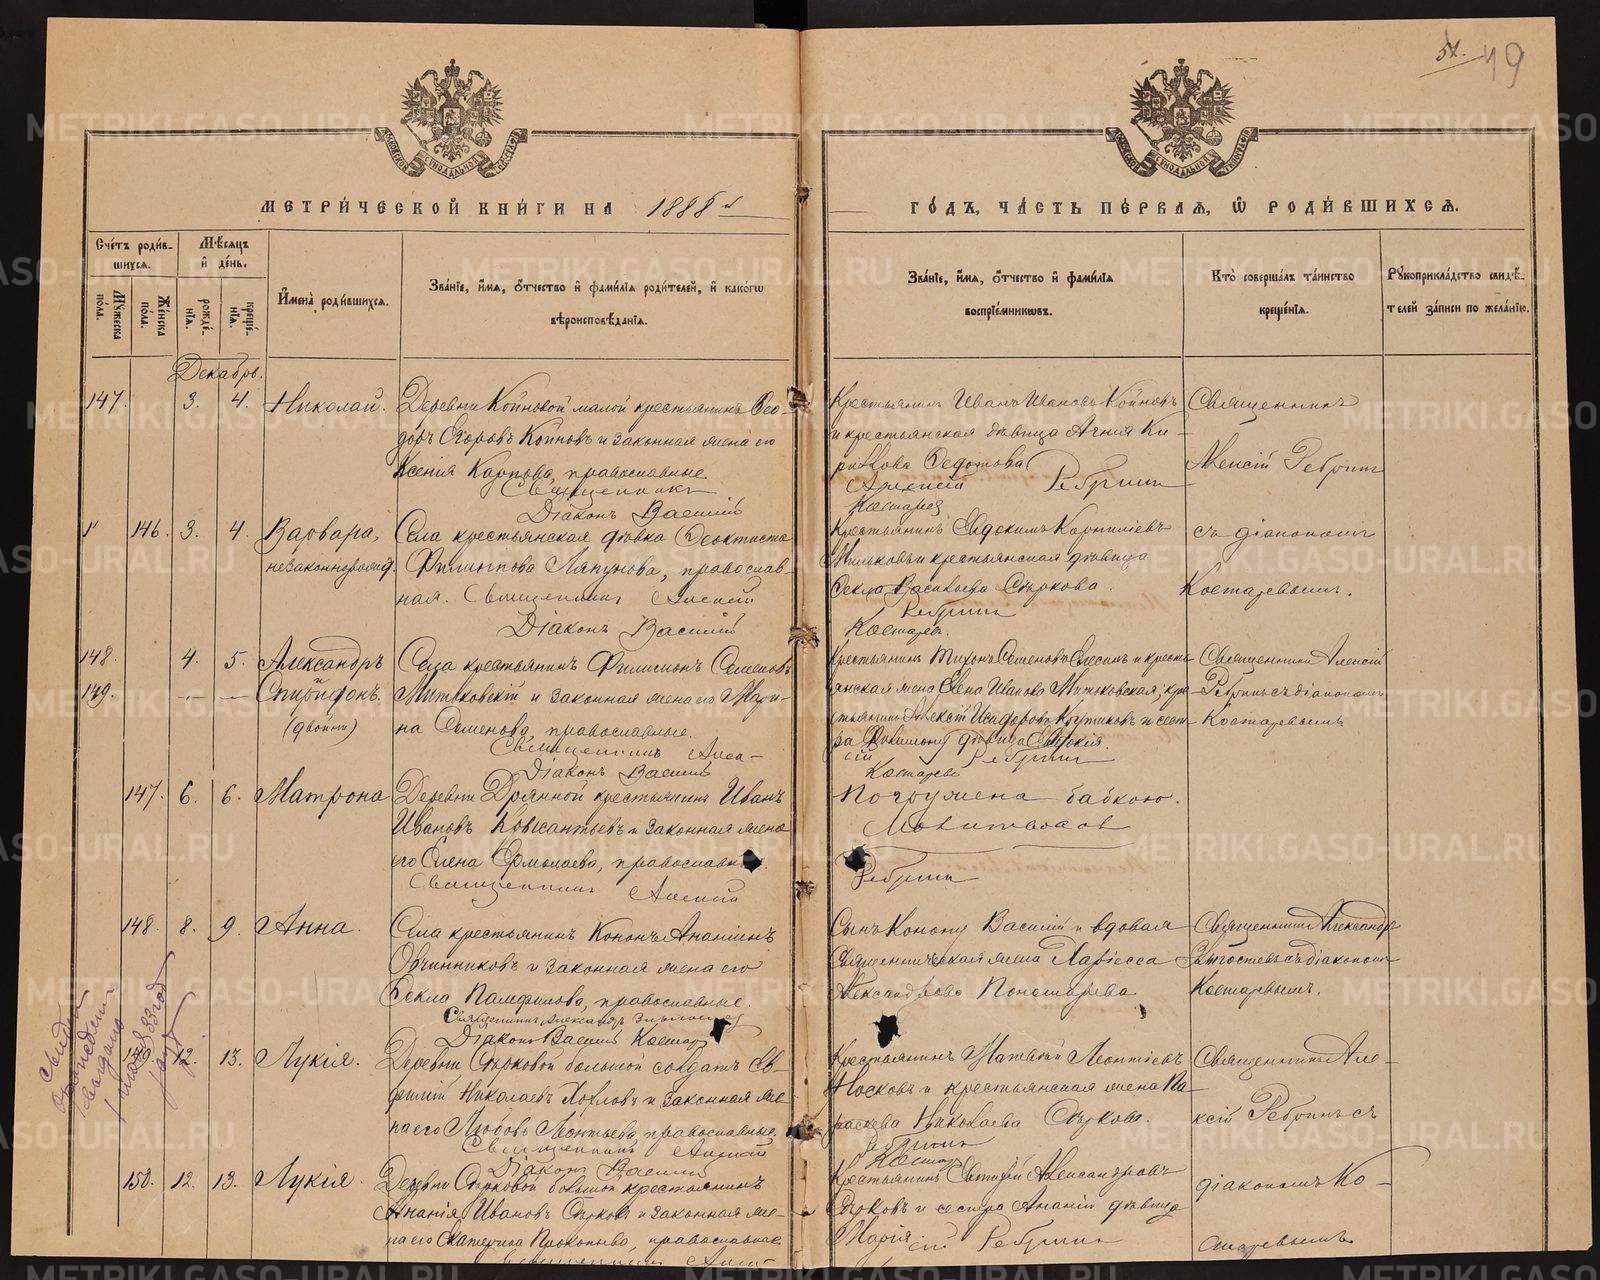 51. 49
МЕТРИ́ЧЕСКОЙ КНИ́ГИ НА 1888 й
ГО́ДЪ, ЧА́СТЬ ПЕ́РВАЯ, Ѽ РОДИ́ВШИХСЯ.
Сче́тъ роди́в-
шихся.
Мꙋ́жеска по́ла.
Же́нска по́ла.
Мѣ́сяцъ и҆ де́нь.
рожде́-
нія.
креще́-
нія.
И҆мена̀ роди́вшихся.
Зва́ніе, и҆́мя, ѻ҆́тчество и҆ фами́лія роди́телей, и҆ како́гѡ
вѣроисповѣ́данія.
Зва́ніе, и҆́мя, ѻ҆́тчество и҆ фами́лія
воспріе́мникѡвъ.
Кто̀ соверша́лъ та́инство
креще́нія.
Рꙋкоприкла́дство свидѣ́-
телей за́писи по жела́нію.
Декабрь.
147. 3. 4. Николай.
Деревни Койновой малой крестьянинъ Ѳео-
доръ Егоровъ Койновъ и законная жена его
Ксенія Карпова, православные.
Священникъ
Діаконъ Василій
Крестьянинъ Иванъ Ивановъ Койновъ
и крестьянская дѣвица Агнія Ки-
рилова Ѳедотова.
Алексій Ребринъ
Костаревъ
Священникъ
Алексій Ребринъ
146. 3. 4. Варвара,
незаконнорожд.
Села крестьянская дѣвка Ѳеоктиста
Филиппова Ляпунова, православ-
ная. Священникъ Алексій
Діаконъ Василій
Крестьянинъ Евдокимъ Корниліевъ
Мильковъ и крестьянская дѣвица
Ѳекла Васильева Стыркова.
Ребринъ
Костаревъ.
съ діакономъ
Костаревымъ.
148. 4. 5. Александръ
и
149. — — Спиридонъ.
(двойни)
Села крестьянинъ Филимонъ Семеновъ
Митьковскій и законная жена его Мари-
на Семенова, православные.
Священникъ Алек-
Діаконъ Василій
Крестьянинъ Тихонъ Семеновъ и кресть-
янская жена Елена Иванова Митьковская; кре-
стьянинъ Алексій Исидоровъ Крутиковъ и сест-
ра Филимону дѣвица Евдокія.
сій Ребринъ
Костаревъ
Священникъ Алексій
Ребринъ съ діакономъ
Костаревымъ
147. 6. 6. Матрона
Деревни Дрянной крестьянинъ Иванъ
Ивановъ и законная жена
его Елена Ермолаева, православные.
Священникъ Алексій
Погружена бабкою.
Молитвовалъ
Ребринъ
148. 8. 9. Анна.
Села крестьянинъ Кононъ Ананіинъ
Овчинниковъ и законная жена его
Ѳекла Памфилова, православные.
Священникъ Александръ
Діаконъ Василій Костар
Сынъ Конону Василій и вдовая
священническая жена Ларисса
Александрова Пономарева
Священникъ Александръ
съ діакономъ
Костаревымъ.
149. 12. 13. Лукія.
Деревни Стырковой большой солдатъ Ев-
филій Николаевъ Хохловъ и законная же-
на его Любовь Леонтьева, православные.
Священникъ Алексій
Діаконъ Василій
Крестьянинъ Матвей Леонтіевъ
Носковъ и крестьянская жена Па-
раскева Николаева Стыркова.
Ребринъ
Костар
Священникъ Але-
ксій Ребринъ съ
150. 12. 13. Лукія.
Деревни Стырковой большой крестьянинъ
Ананія Ивановъ Стырковъ и законная же-
на его Екатерина Прокопьева, православные
Священникъ Алек
Крестьянинъ Евтихій Александровъ
Стырковъ и сестра Ананій дѣвица
Марія. сій Ребринъ
діакономъ Ко-
старевымъ
METRIKI.GASO-URAL.RU